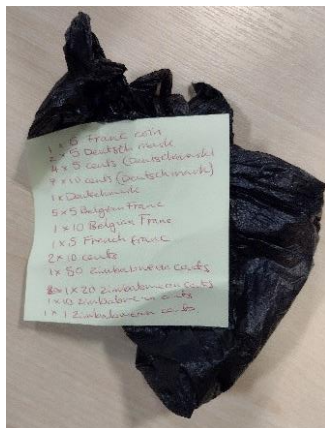 1 x 5 franc coin
2 x 5 Deutsch mark
4 x 5 cents (Deutschmark)
7 x 10 cents (Deutschmark)
1 x Deutchmark
5 x 5 Belgian Franc
1 x 10 Belgian Franc
1 x 5 French franc
2 x 10 cents
1 x 50 Zimbabwean cents
1 x 20 Zimbabwean cents
1 x 10 Zimbabwean cents
1 x 1 Zimbabwean cents